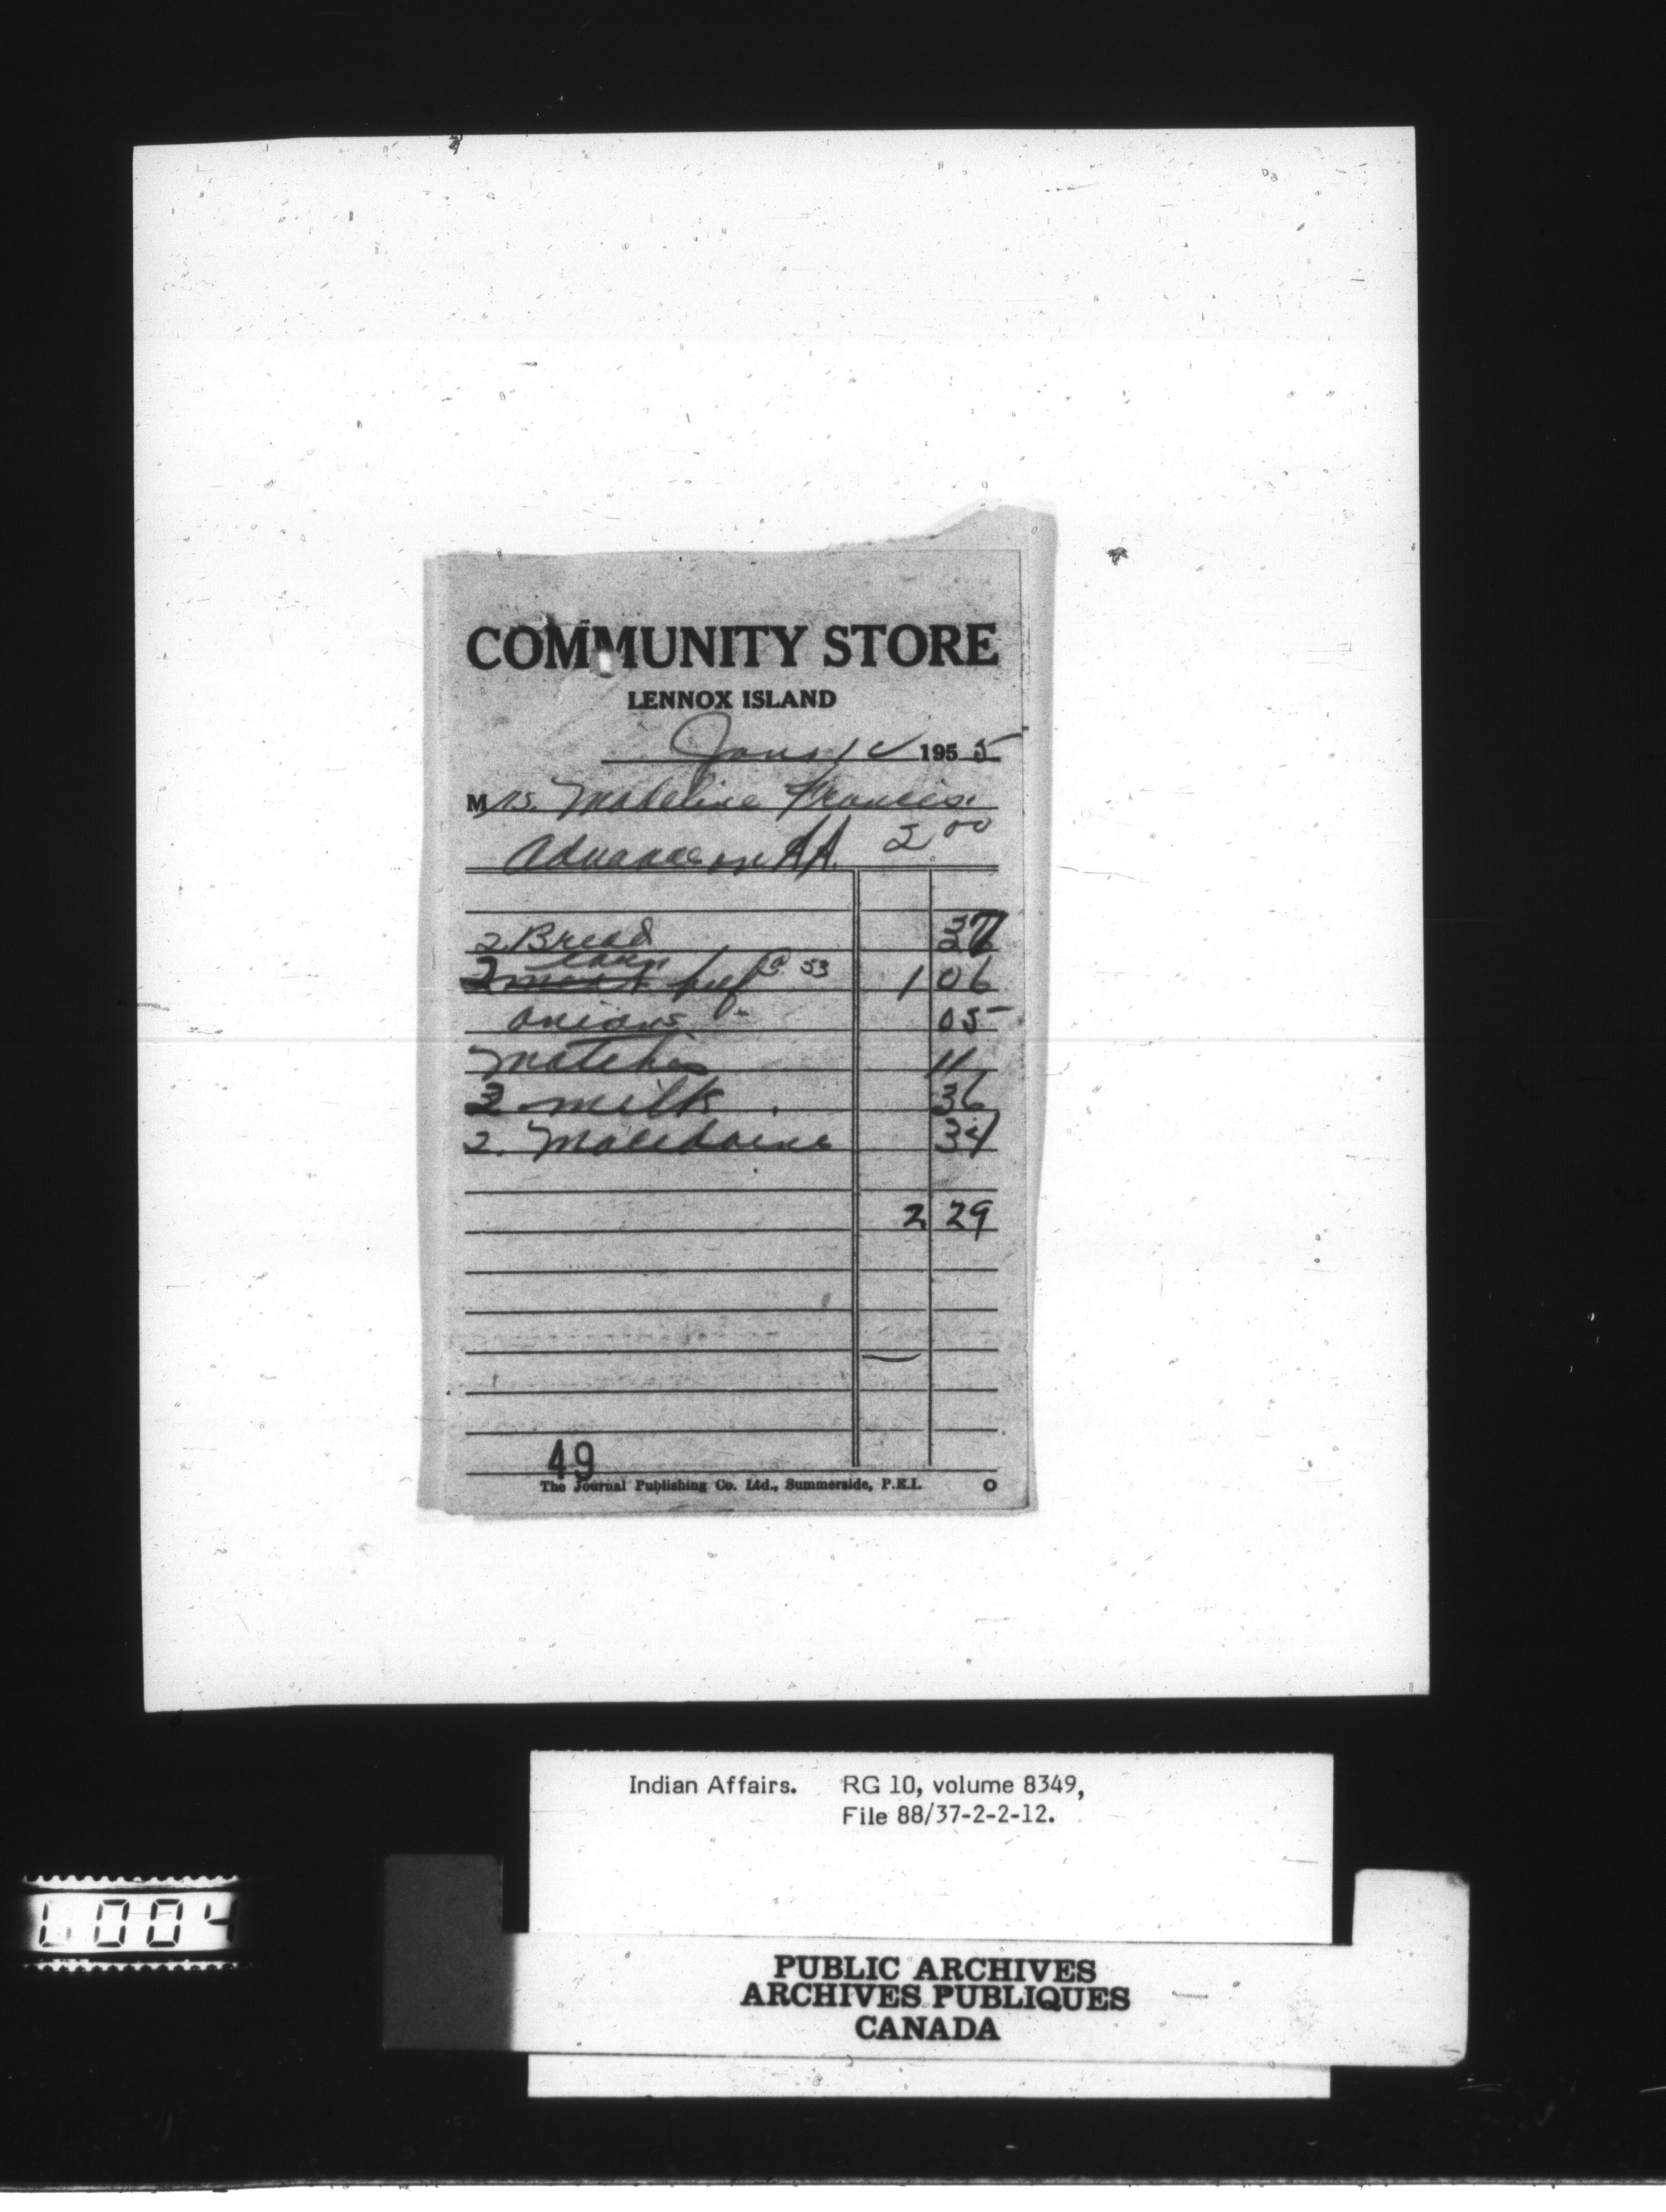 COMMUNITY STORE
LENNOX ISLAND
1955
Mrs. Madeline Francis.
Advance on 2 00
2 Bread 37
2 corn beef @ 53 1 06
onions 05
Matches 11
2 milk 36
2. Macedoine 34
2 29
49
The Journal Publishing Co. Ltd., Summerside, P.E.I.
Indian Affairs. RG 10, volume 8349,
File 88/37-2-2-12.
004
PUBLIC ARCHIVES
ARCHIVES PUBLIQUES
CANADA